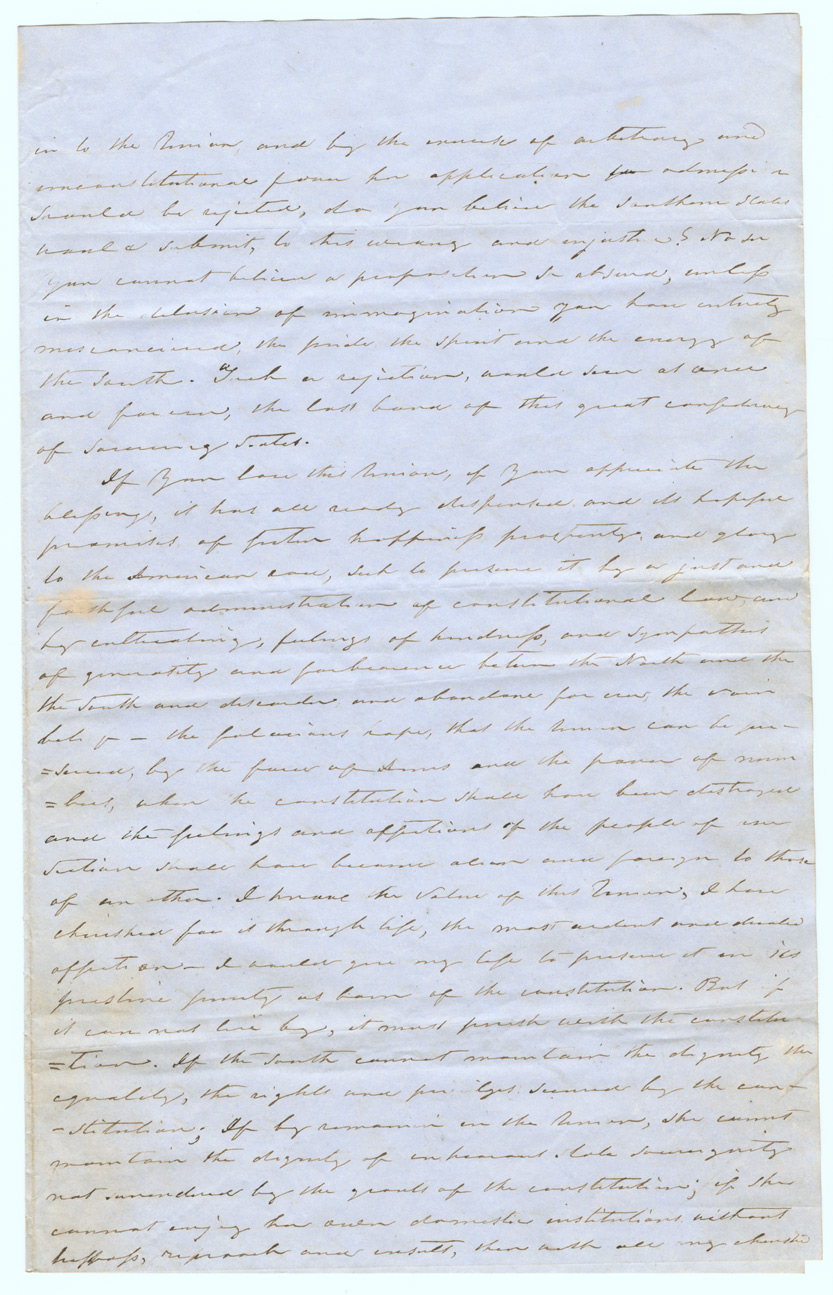 in to the Union, and by the exercise of arbitrary and
unconstitutional power her application for admission
should be rejected, do you believe the Southern States
would submit, to this wrong and injustice? No sir
you cannot believe a proposition so absurd, unless
in the delusion of immagination you have entirely
misconceived, the pride the spirit and the energy of
the South. Such a rejection, would sever at once
and forever, the last bond of this great confederacy
of Sovereig States.
If you love this Union, if you appreciate the
blessings, it has all ready dispensed and its hopeful
promises of future happiness prosperity, and glory
to the American race, seek to preserve it by a just and
faithful administration of constitutional law, and
by cultivating, feelings of kindness, and sympathies
of generosity and forbearance between the North and the
the South and discorder and abandone for ever, the vain
belief – the falacious hope, that the Union can be pre-
=served, by the force of Arms and the power of num
=bers, when the constitution shall have been destroyed
and the feelings and affections of the people of one
section shall have become alien and foreign to those
of an other. I know the value of this Union, I have
cherished for it through life, the most ardent and devoted
affection – I would give my life to preserve it in its
pristine purity as born of the constitution. But if
it can not live by, it must perish with the constitu
=tion. If the South cannot maintain the dignity the
equality, the rights and privileges secured by the con-
-stitution; If by remainin in the Union, she cannot
maintain the dignity of inherent State sovereignity
not surrendered by the grants of the constitution; if she
cannot enjoy her own domestic institutions without
trespass, reproach and insult, then with all my cherished